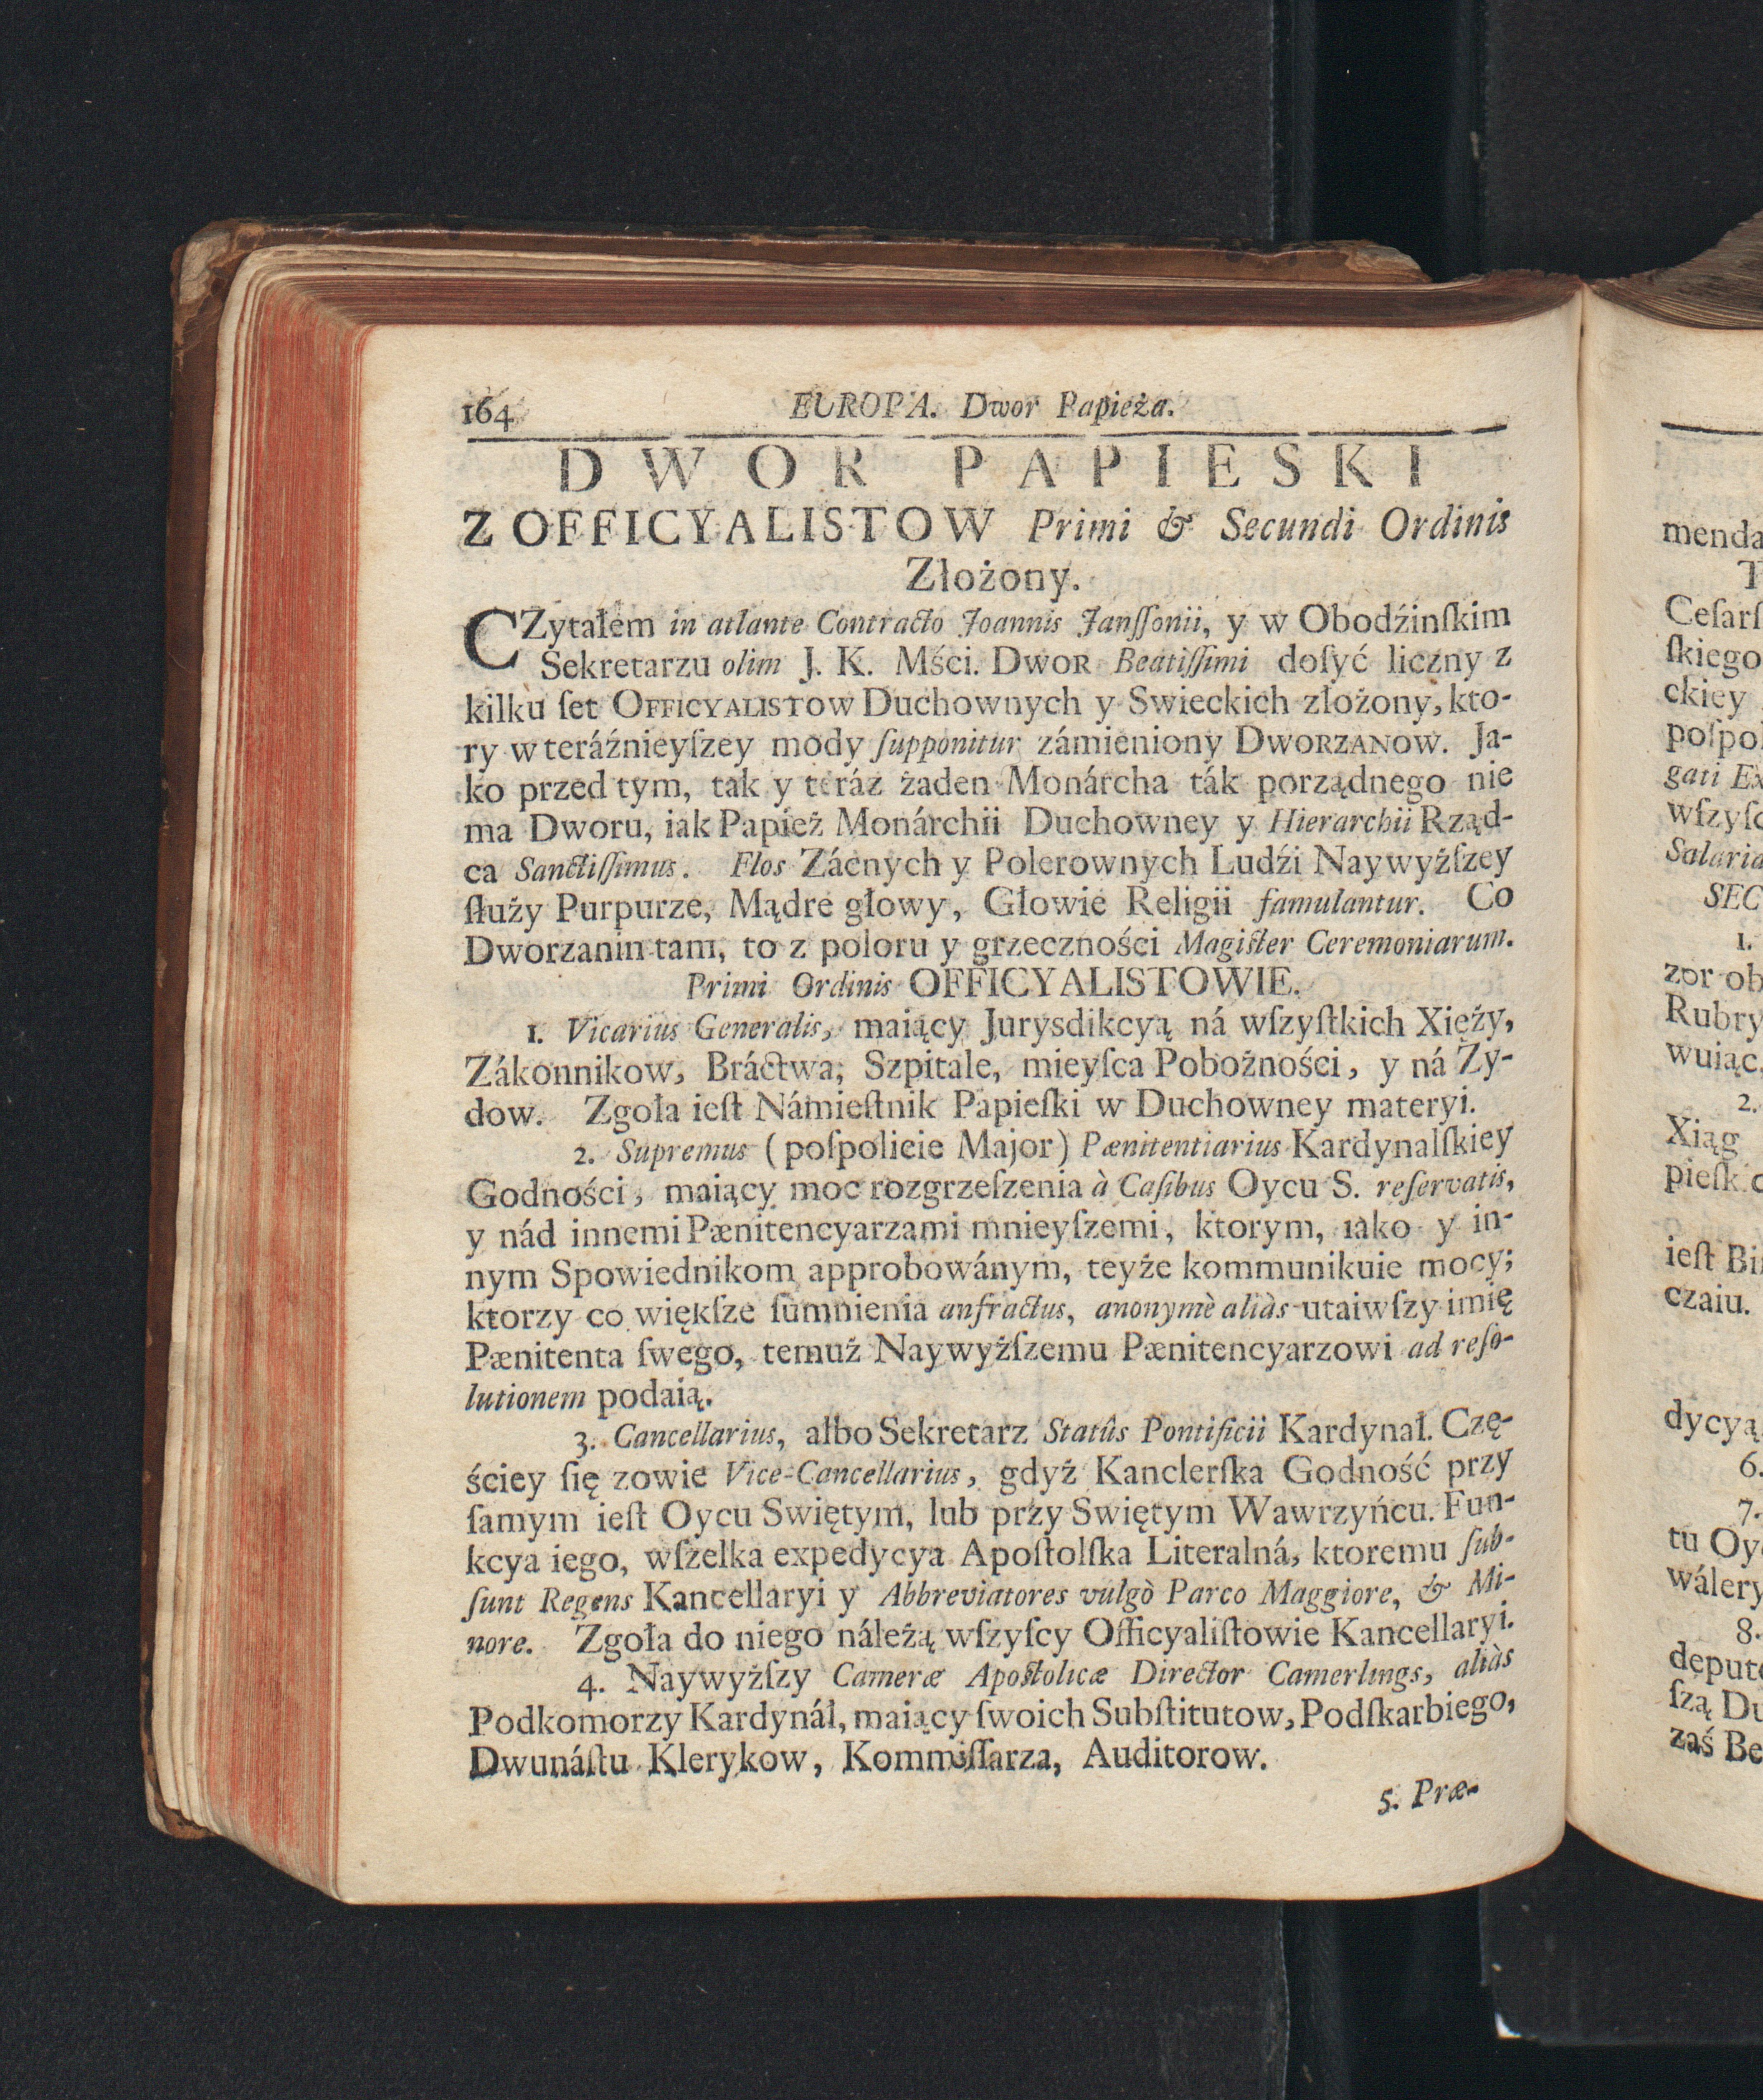 164 EUROPA. Dwor Papieża.
DWOR PAPIESKI
Z OFFICYALISTOW Primi & Secundi Ordinis
Złożony.
CZytałem in atlante Contracto Joannis Janſſonii, y w Obodźinſkim
Sekretarzu olim J. K. Mści. DWOR Beatiſſimi doſyć liczny z
kilku ſet OFFICYALISTOW Duchownych y Swieckich złożony, kto-
ry w teráźnieyſzey mody ſupponitur zámieniony DWORZANOW. Ja-
ko przed tym, tak y teráz żaden Monárcha ták porządnego nie
ma Dworu, iak Papież Monárchii Duchowney y Hierarchii Rząd-
ca Sanctiſſimus. Flos Zácnych y Polerownych Ludźi Naywyżſzey
ſłuży Purpurze, Mądre głowy, Głowie Religii famulantur. Co
Dworzanin tam, to z poloru y grzeczności Magiſter Ceremoniarum.
Primi Ordinis OFFICYALISTOWIE.
1. Vicarius Generalis, maiący Jurysdikcyą ná wſzyſtkich Xięży,
Zákonnikow, Bráctwa, Szpitale, mieyſca Pobożności, y ná Ży-
dow. Zgoła ieſt Námieſtnik Papieſki w Duchowney materyi.
2. Supremus (poſpolicie Major) Pænitentiarius Kardynalſkiey
Godności, maiący moc rozgrzeſzenia à Caſibus Oycu S. reſervatis,
y nád innemi Pænitencyarzami mnieyſzemi, ktorym, iako y in-
nym Spowiednikom approbowánym, teyże kommunikuie mocy;
ktorzy co więkſze ſumnienia anfractus, anonymè aliàs utaiwſzy imię
Pænitenta ſwego, temuż Naywyżſzemu Pænitencyarzowi ad reſo-
lutionem podaią.
3. Cancellarius, albo Sekretarz Statûs Pontificii Kardynał. Czę-
ściey ſię zowie Vice-Cancellarius, gdyż Kanclerſka Godność przy
ſamym ieſt Oycu Swiętym, lub przy Swiętym Wawrzyńcu. Fun-
kcya iego, wſzelka expedycya Apoſtolſka Literalná, ktoremu ſub-
ſunt Regens Kancellaryi y Abbreviatores vulgò Parco Maggiore, & Mi-
nore. Zgoła do niego náleżą wſzyſcy Officyaliſtowie Kancellaryi.
4. Naywyżſzy Cameræ Apoſtolicæ Director Camerlings, aliàs
Podkomorzy Kardynáł, maiący ſwoich Subſtitutow, Podſkarbiego,
Dwunáſtu Klerykow, Kommiſſarza, Auditorow.
5. Præ-
menda
Ceſarſ
ſkiego
ckiey
poſpo
gati Ex
wſzyſc
Salaria
SEC
1.
zor ob
Rubry
wuiąc
2.
Xiąg
pieſk
ieſt Bi
czaiu.
dycyą
6.
7.
tu Oy
wálery
8.
depute
ſzą Du
zaś Be